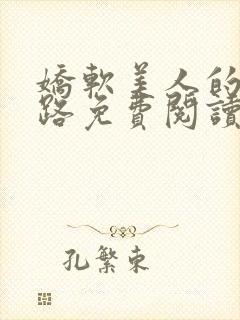 嬌軟美人的
路免費閱讀
孔繁東